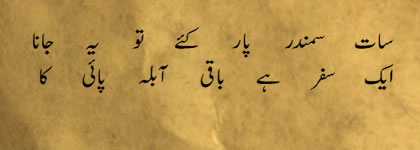 سات سمندر پار کئے تو یہ جانا
ایک سفر ہے باقی آبلہ پائی کا